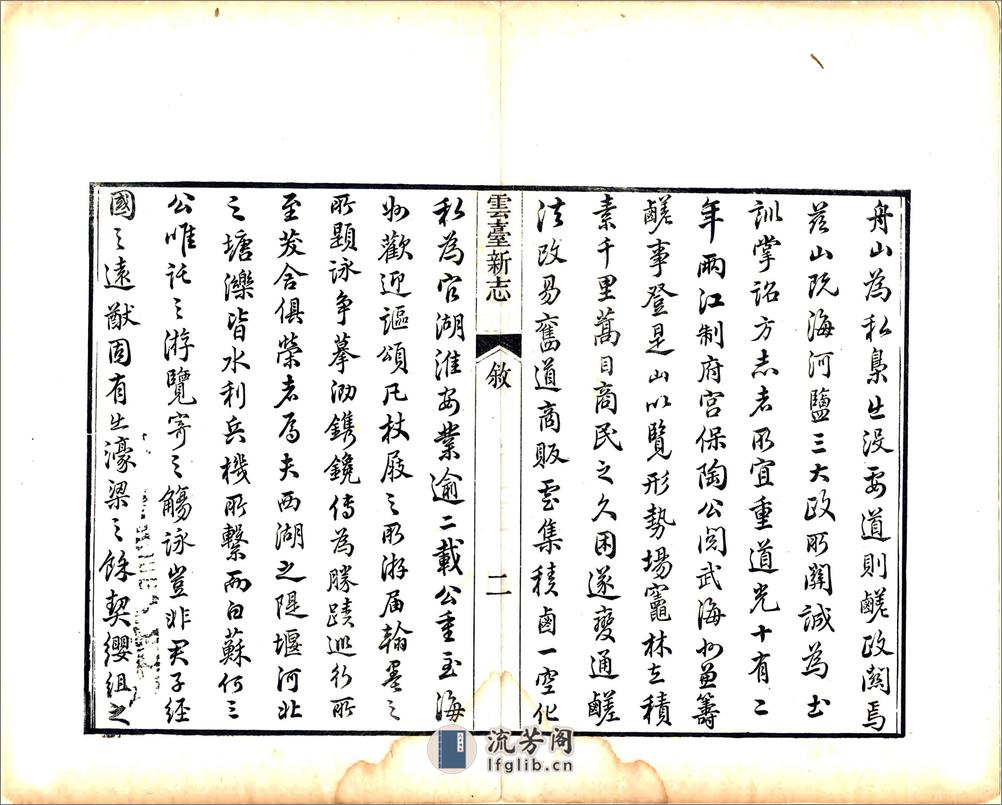 舟山為私梟出没要道則鹺政關焉
茲山既海河鹽三大政所關誠為土
訓掌詔方志者所宜重道光十有二
年兩江制府宮保陶公閱武海州兼籌
鹺事登是山以覽形勢場竈林立積
素千里蒿目商民之久困遂變通鹺
法改易舊道商販雲集積鹵一空化
雲臺新志
敘
二
私為官湖淮安業逾二載公重至海
州歡迎謳頌凡杖屐之所游屆翰墨之
所題詠爭摹泐鐫鑱傳為勝蹟巡行所
至茇舍俱榮者焉夫西湖之隄堰河北
之塘濼皆水利兵機所繫而白蘇何三
公唯託之游覽寄之觴詠豈非君子經
國之遠猷固有出濠梁之餘契纓組之
流芳阁
lfglib.cn